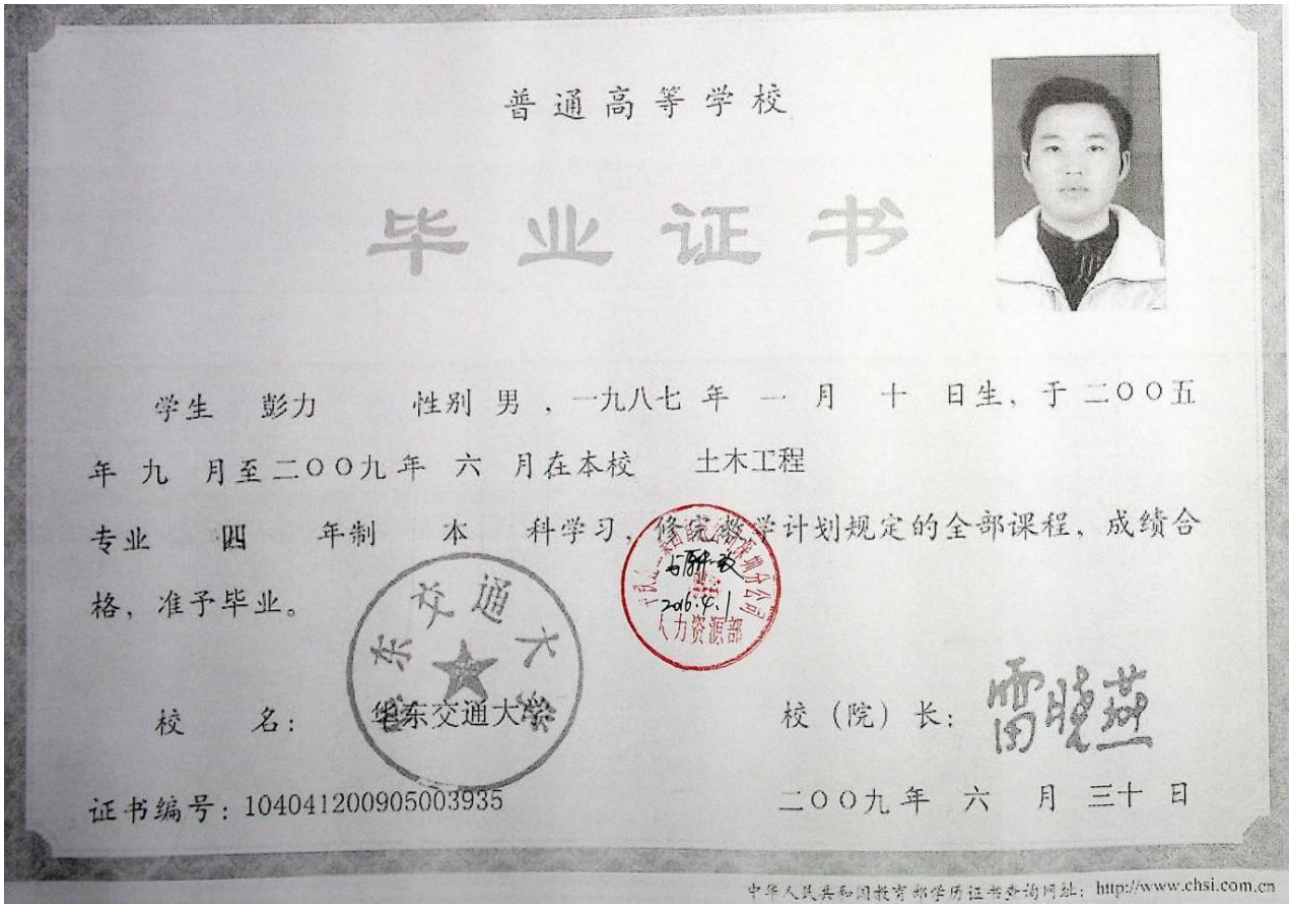 普通高等学校
毕业证书
学生 彭力 性别 男 ，一九八七 年 一 月 十 日生，于 二〇〇五
年 九 月至二〇〇九年 六 月在本校 土木工程
专业 四 年制 本 科学习，修完教学计划规定的全部课程，成绩合
格，准予毕业。
深圳分公司
2016.4.1
人力资源部
东交通大
校 名： 华东交通大学
校（院）长： 雷晓燕
证书编号：104041200905003935
二〇〇九年 六 月 三十 日
中华人民共和国教育部学历证书查询网址：http://www.chsi.com.cn